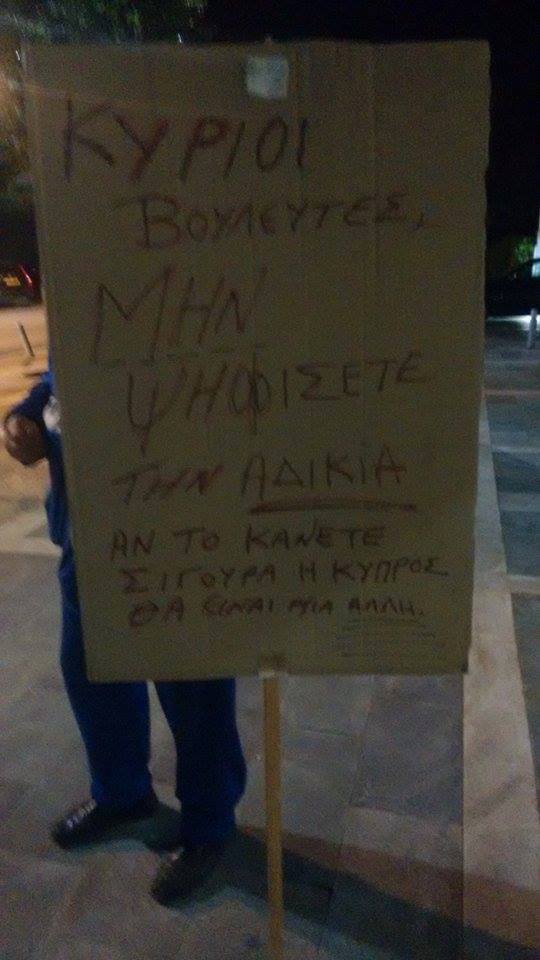 ΚΥΡΙΟΙ
ΒΟΥΛΕΥΤΕΣ,
ΜΗΝ
ΨΗΦΙΣΕΤΕ
ΤΗΝ ΑΔΙΚΙΑ
ΑΝ ΤΟ ΚΑΝΕΤΕ
ΣΙΓΟΥΡΑ Η ΚΥΠΡΟΣ
ΘΑ ΕΙΝΑΙ ΜΙΑ ΑΛΛΗ.